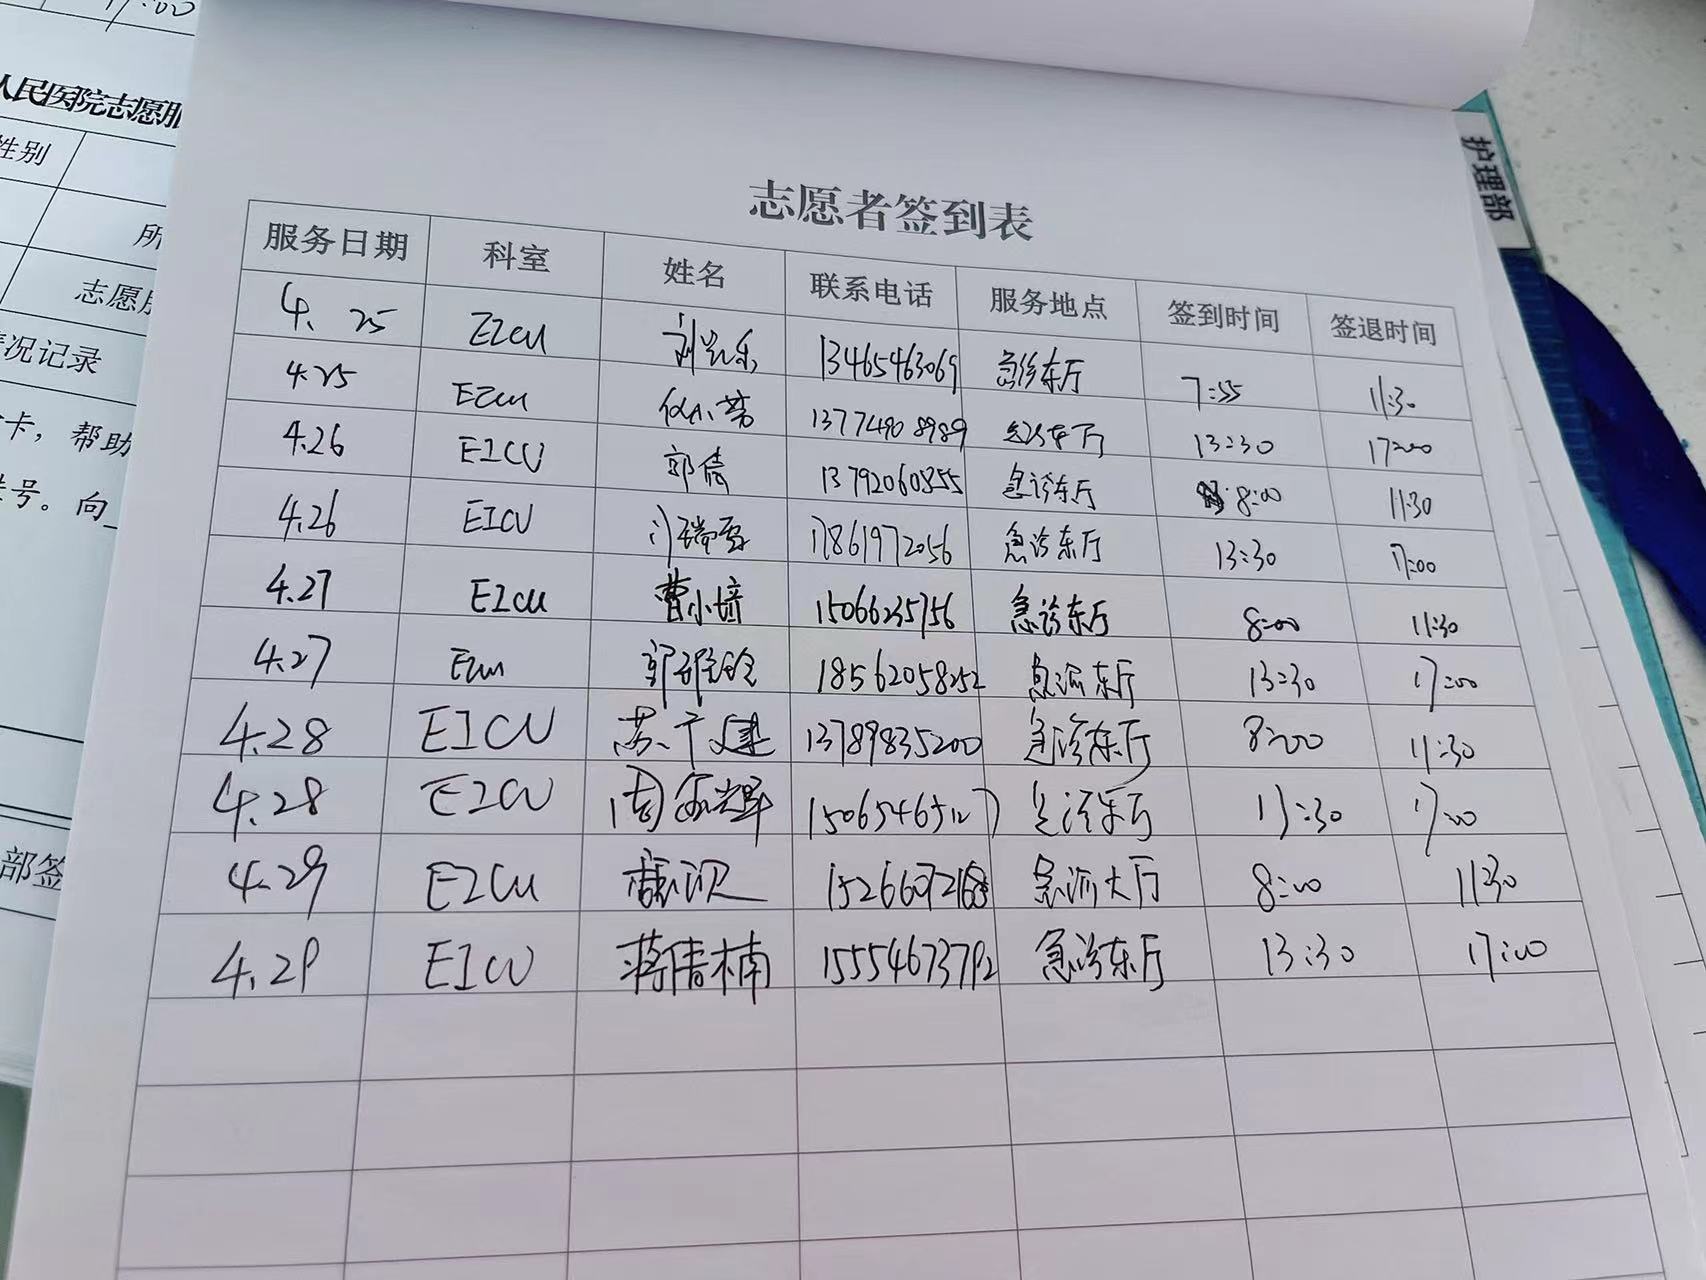 17:00
人民医院志愿服
性别
所
志愿服
情况记录
卡，帮助
挂号。向
部签
护理部
志愿者签到表
服务日期 科室 姓名 联系电话 服务地点 签到时间 签退时间
4.25 EICU 13465463069 急诊东厅 7:55 11:30
4.25 EICU 13774908989 急诊东厅 13:30 17:00
4.26 EICU 郭倩 13792060855 急诊东厅 8:00 11:30
4.26 EICU 17861972056 急诊东厅 13:30 17:00
4.27 EICU 曹小培 15066235756 急诊东厅 8:00 11:30
4.27 EICU 18562058252 急诊东厅 13:30 17:00
4.28 EICU 苏千建 13789835200 急诊东厅 8:00 11:30
4.28 EICU 15065465127 急诊东厅 13:30 17:00
4.29 EICU 急诊大厅 8:00 11:30
4.29 EICU 蒋倩楠 15554673792 急诊东厅 13:30 17:00